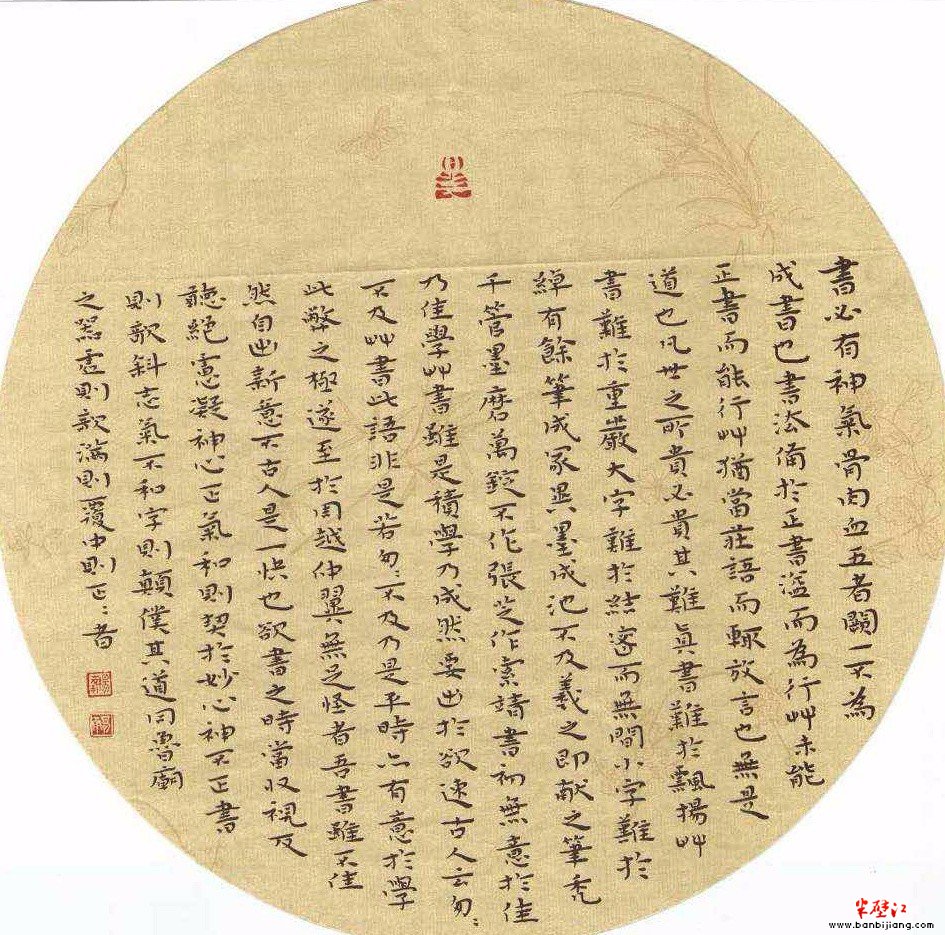 書必有神氣骨肉血五者闕一不為
成書也書法備於正書溢而為行艸未能
正書而能行艸猶當莊語而輒放言也無是
道也凡世之所貴必貴其難真書難於飄揚艸
書難於嚴重大字難於結密而無間小字難於
綽有餘筆成冢與墨成池不及羲之即献之筆禿
千管墨磨萬鋌不作張芝作索靖書初無意於佳
乃佳學艸書雖是積學乃成然要出於欲速古人云匆:
不及艸書此語非是若匆:不及乃是平時亦有意於學
此弊之極遂至於周越仲翼無足怪者吾書雖不佳
然自出新意不古人是一快也欲書之時當収視反
聽絕慮凝神心正氣和則契於妙心神不正書
則欹斜志氣不和字則顛僕其道同魯廟
之器虛則欹滿則覆中則正:者
半壁江
www.banbijiang.com